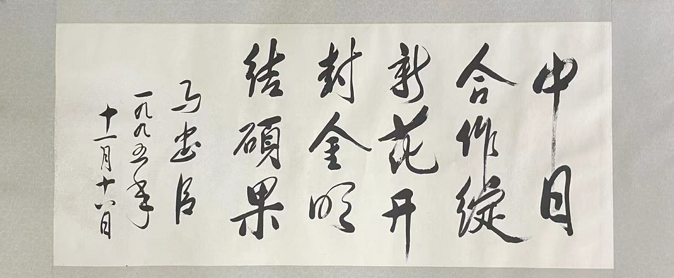 中日
合作绽
新花开
封金明
结硕果
马忠臣
一九九五年
十一月十八日